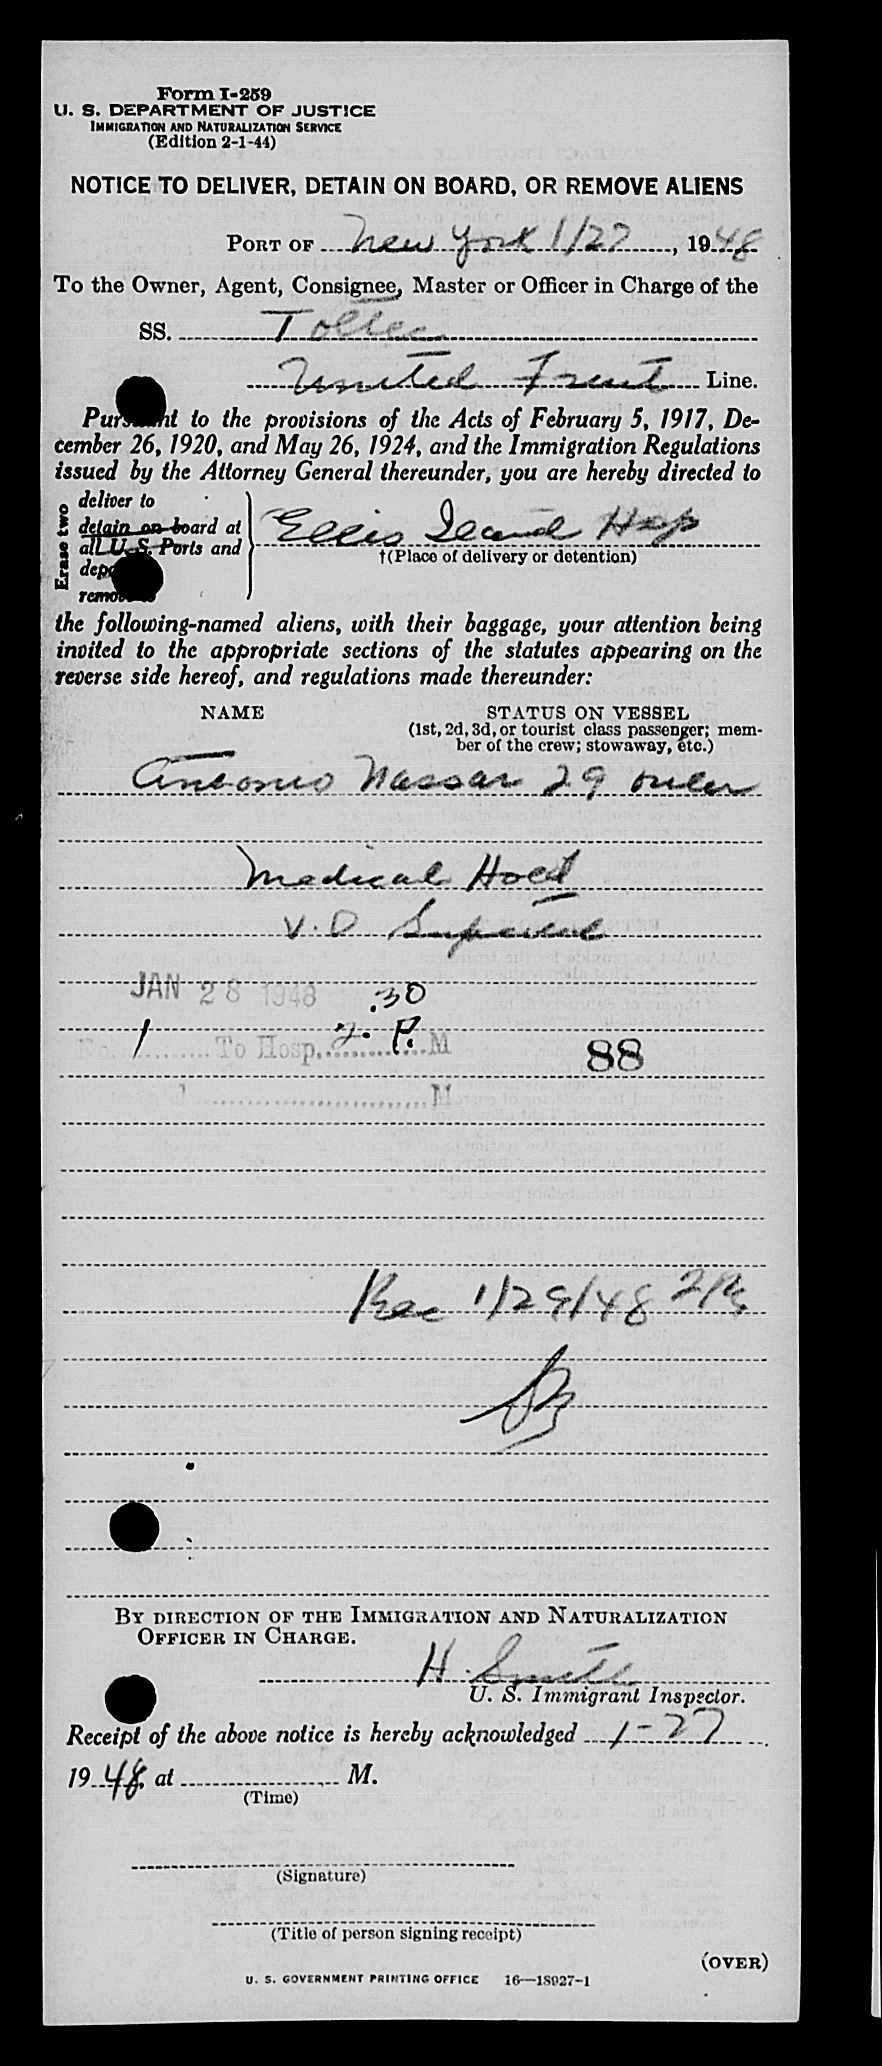 Form I-259
U. S. DEPARTMENT OF JUSTICE
IMMIGRATION AND NATURALIZATION SERVICE
(Edition 2-1-44)
NOTICE TO DELIVER, DETAIN ON BOARD, OR REMOVE ALIENS
PORT OF New York 1/27, 1948
To the Owner, Agent, Consignee, Master or Officer in Charge of the
SS. Toltec
United Fruit Line.
Pursuant to the provisions of the Acts of February 5, 1917, De-
cember 26, 1920, and May 26, 1924, and the Immigration Regulations
issued by the Attorney General thereunder, you are hereby directed to
Erase two
deliver to
detain on board at
all U. S. Ports and
remove to
Ellis Island Hosp
†(Place of delivery or detention)
the following-named aliens, with their baggage, your attention being
invited to the appropriate sections of the statutes appearing on the
reverse side hereof, and regulations made thereunder:
NAME
STATUS ON VESSEL
(1st, 2d, 3d, or tourist class passenger; mem-
ber of the crew; stowaway, etc.)
Antonio Nassar 29 oiler
Medical Hold
V.D Suspect
JAN 28 1948 .30
No. 1 To Hosp. 2. P. M
88
M
Rec 1/29/48
BY DIRECTION OF THE IMMIGRATION AND NATURALIZATION
OFFICER IN CHARGE.
H. Smith
U. S. Immigrant Inspector.
Receipt of the above notice is hereby acknowledged 1-27
1948, at M.
(Time)
(Signature)
(Title of person signing receipt)
(OVER)
U. S. GOVERNMENT PRINTING OFFICE 16—18927-1